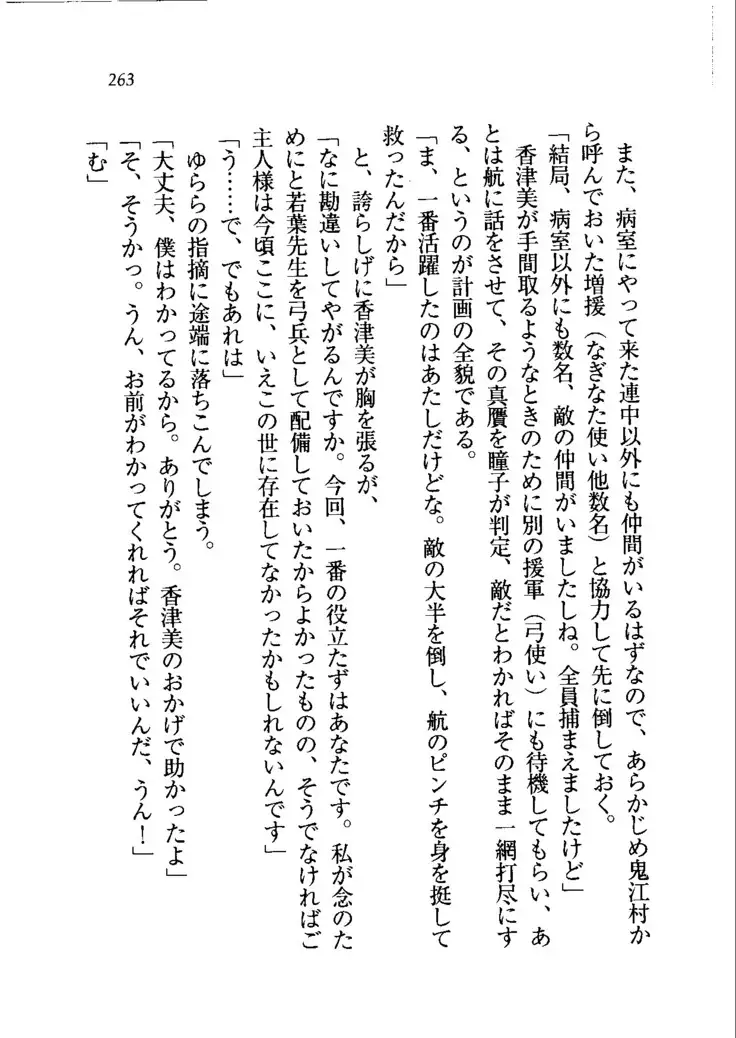 263
また、病室にやって来た連中以外にも仲間がいるはずなので、あらかじめ鬼江村か
ら呼んでおいた増援（なぎなた使い他数名）と協力して先に倒しておく。
「結局、病室以外にも数名、敵の仲間がいましたしね。全員捕まえましたけど」
香津美が手間取るようなときのために別の援軍（弓使い）にも待機してもらい、あ
とは航に話をさせて、その真贋を瞳子が判定、敵だとわかればそのまま一網打尽にす
る、というのが計画の全貌である。
「ま、一番活躍したのはあたしだけどな。敵の大半を倒し、航のピンチを身を挺して
救ったんだから」
と、誇らしげに香津美が胸を張るが、
「なに勘違いしてやがるんですか。今回、一番の役立たずはあなたです。私が念のた
めにと若葉先生を弓兵として配備しておいたからよかったものの、そうでなければご
主人様は今頃ここに、いえこの世に存在してなかったかもしれないんです」
「う……で、でもあれは」
ゆららの指摘に途端に落ちこんでしまう。
「大丈夫、僕はわかってるから。ありがとう。香津美のおかげで助かったよ」
「そ、そうかっ。うん、お前がわかってくれればそれでいいんだ、うん！」
「む」